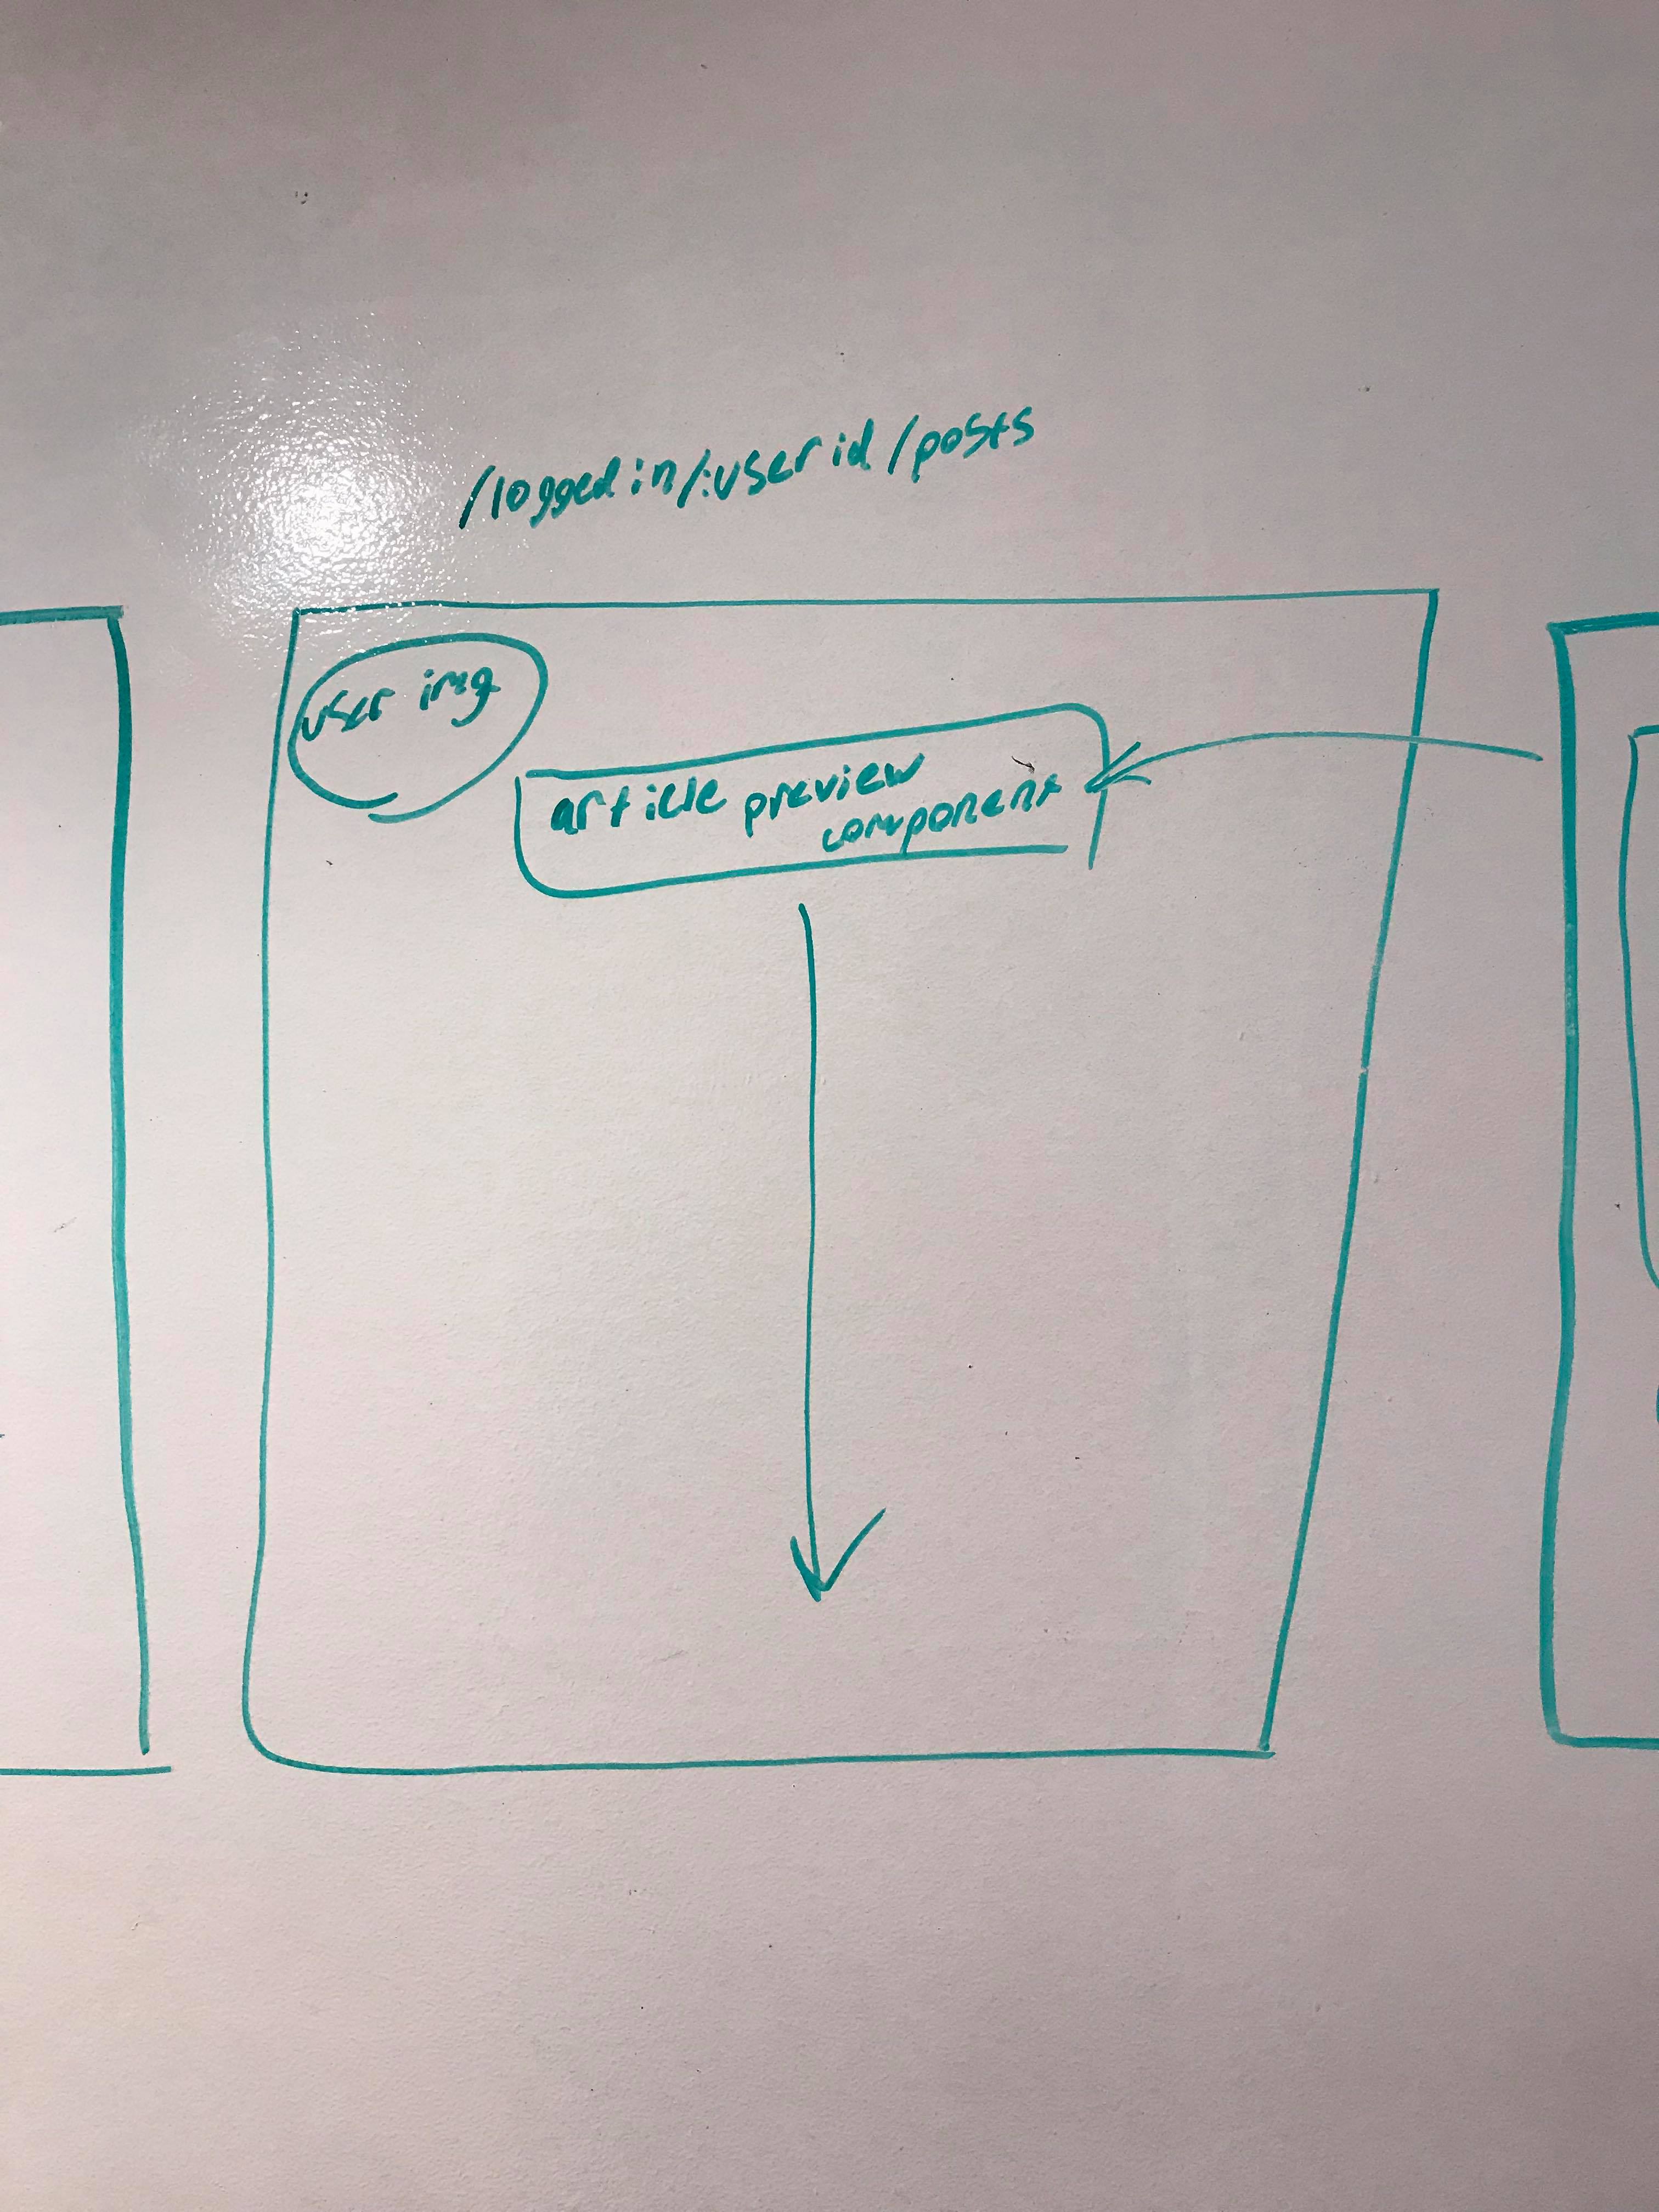 /loggedin/:userid/posts
user img
article preview
component